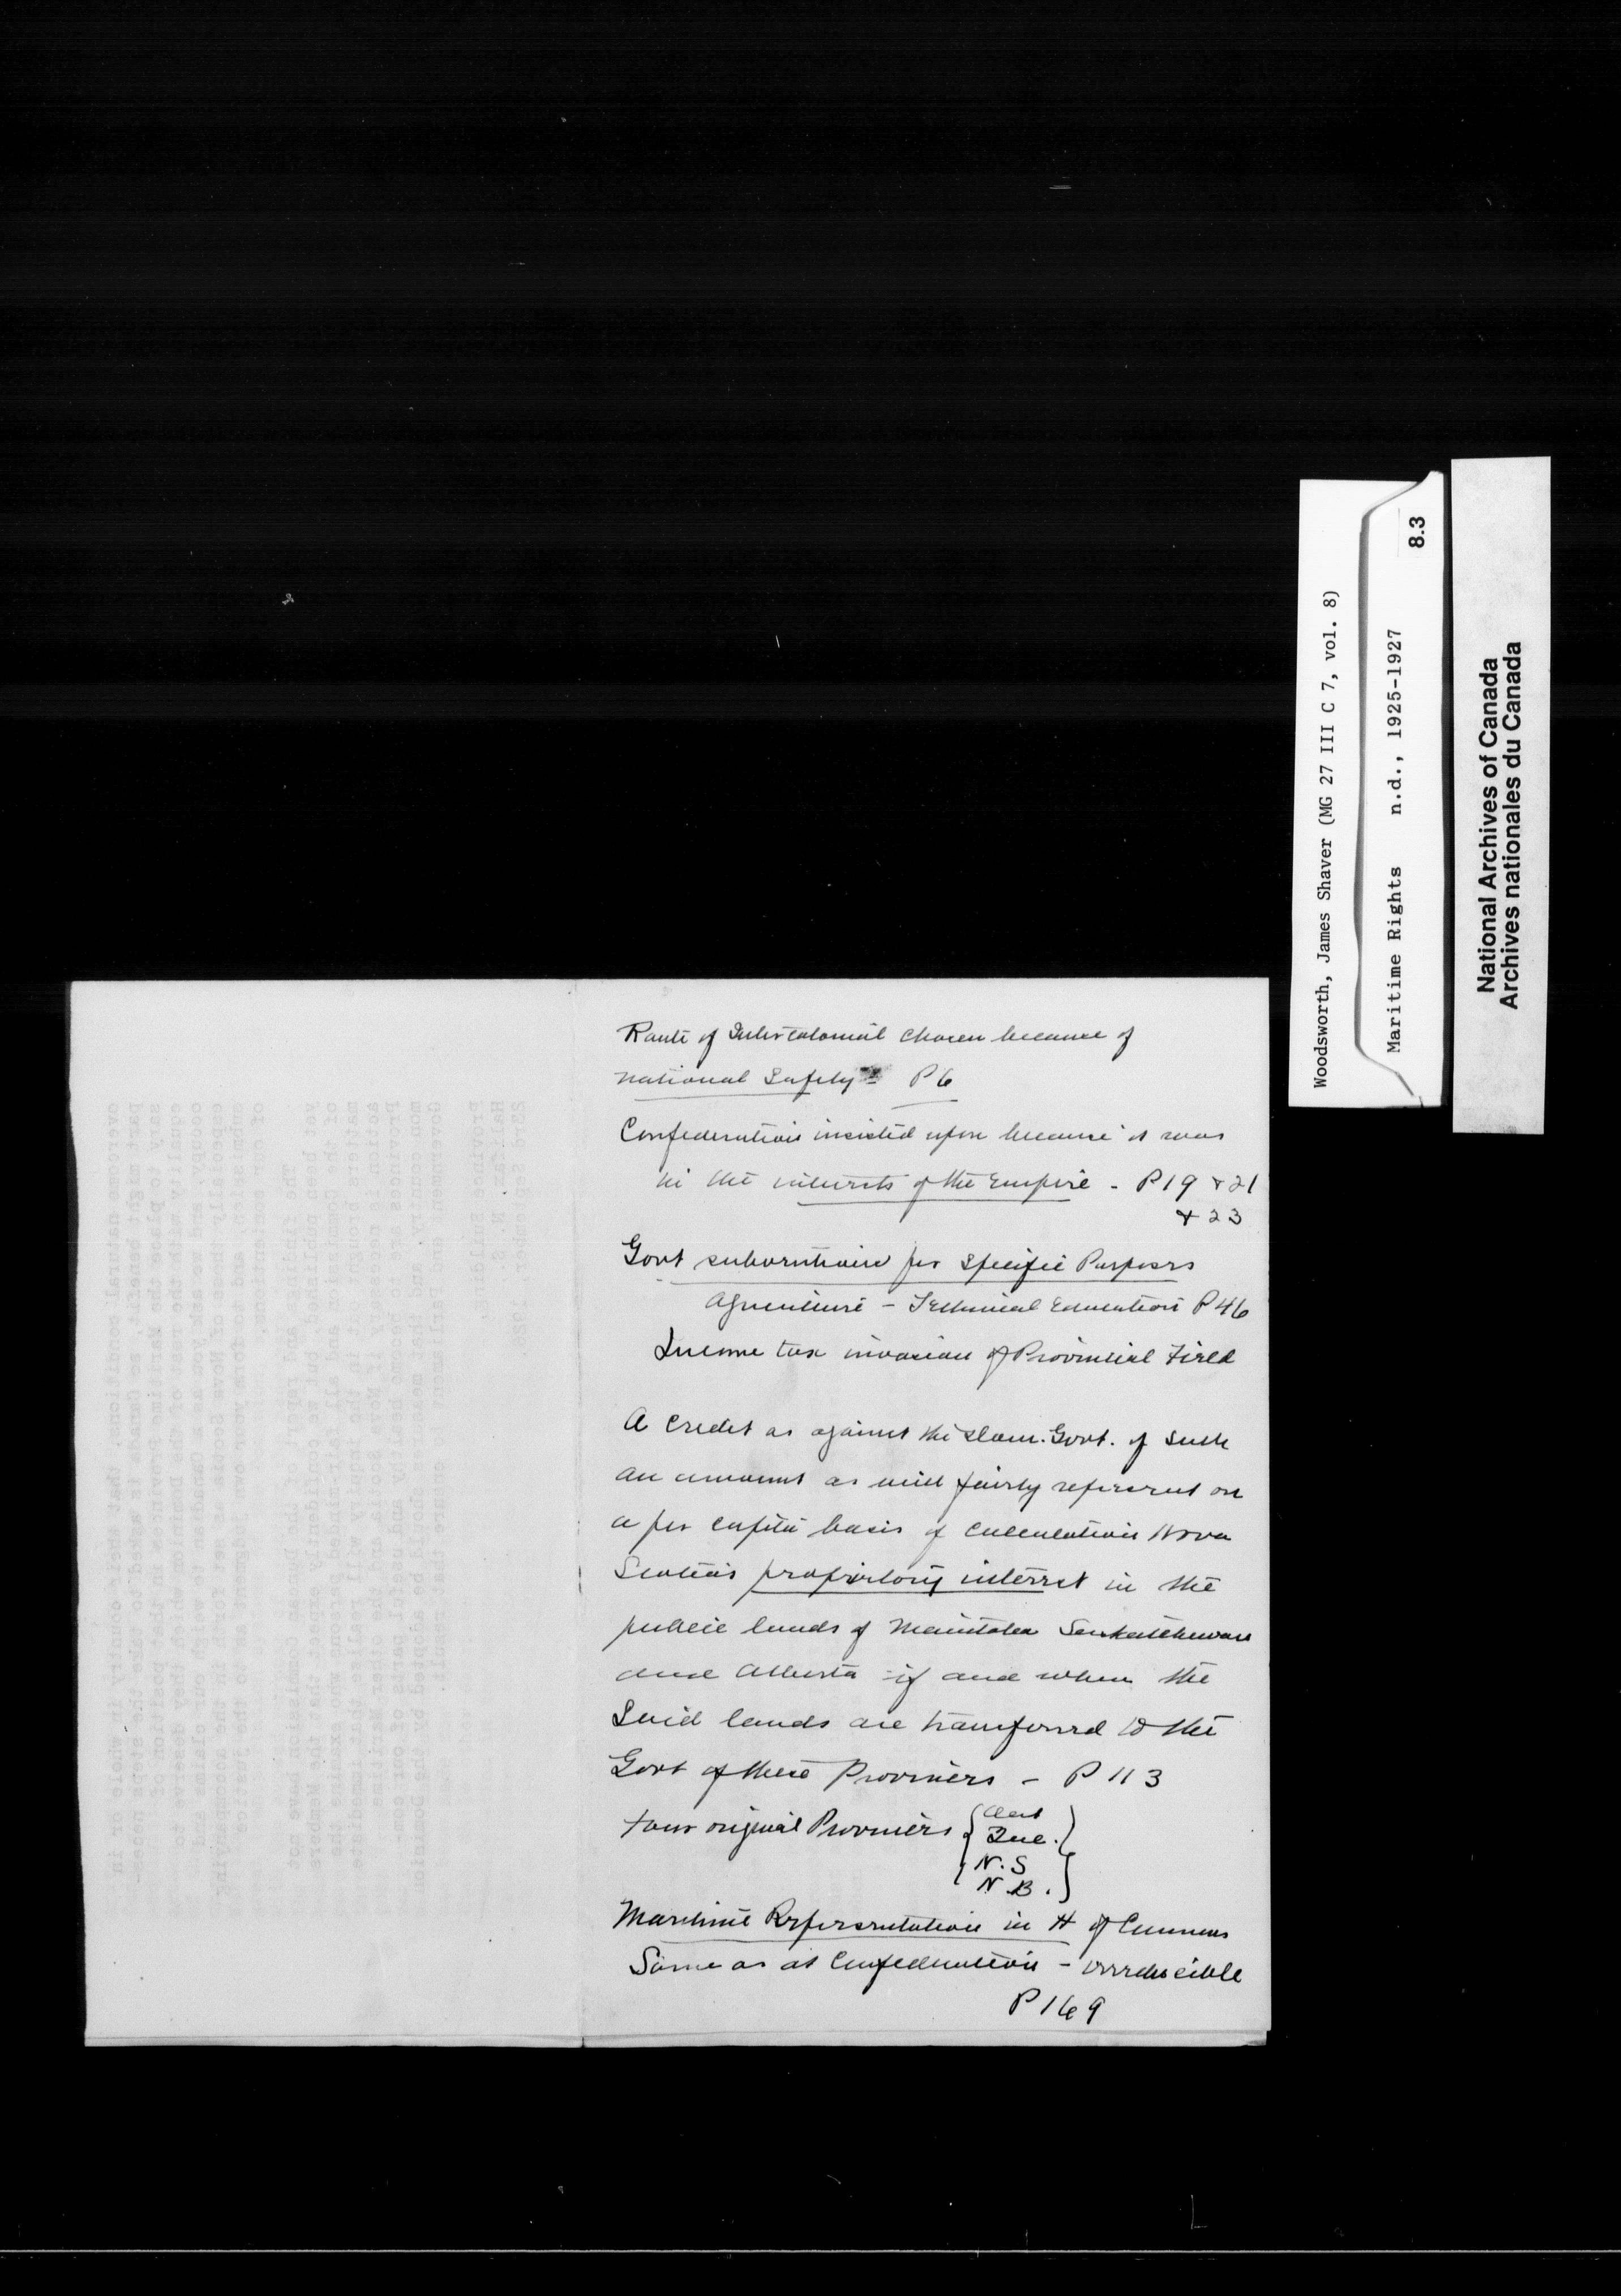 Route of Intercolonial chosen because of
national safety - P 6
Confederation insisted upon because it was
in the interests of the Empire - P 19 & 21
& 23
Govt subventions for specific Purposes
Agriculture - Technical Education P 46
Income tax invasion of Provincial Field
A credit as against the Dom. Govt. of such
an amount as will fairly represent on
a per capita basis of calculation Nova
Scotia's proprietory interest in the
public lands of Manitoba Saskatchewan
and Alberta if and when the
said lands are transferred to the
Govt of these Provinces - P 113
four original Provinces { Ont }
{ Que. }
{ N.S }
N.B. }
Maritime Representation in H of Commons
Same as at Confederation - irreducible
P 169
Woodsworth, James Shaver (MG 27 III C 7, vol. 8)
Maritime Rights n.d., 1925-1927
8.3
National Archives of Canada
Archives nationales du Canada